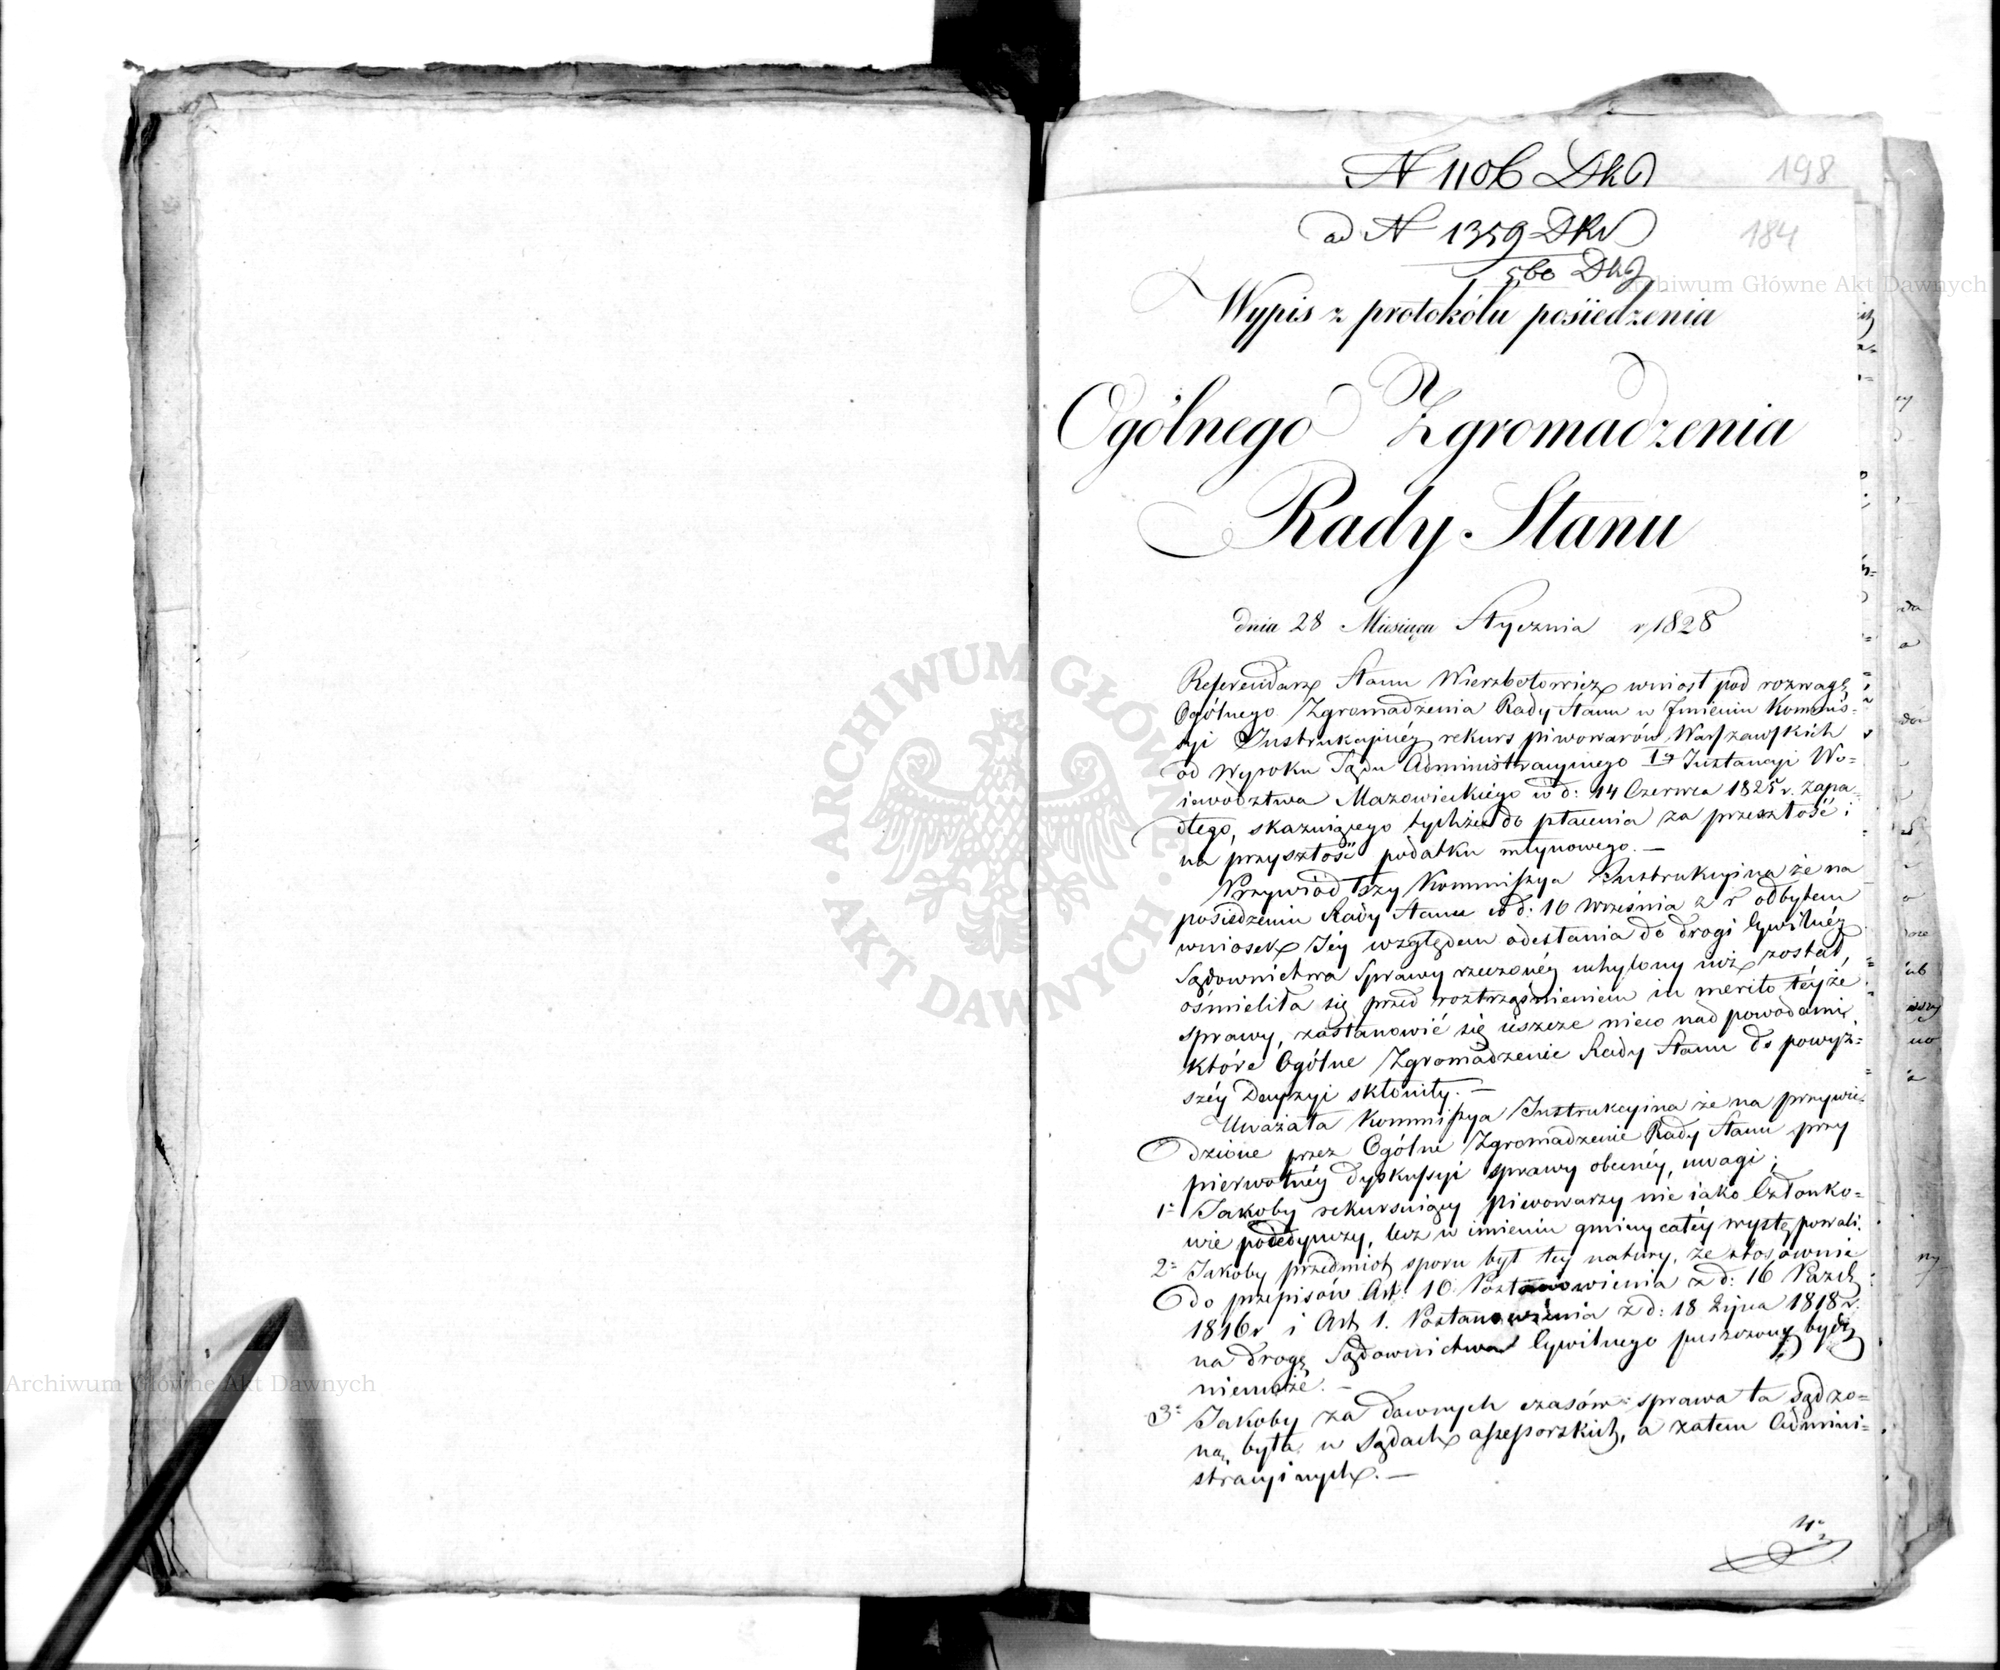 N 1106 DkJ
198
ad N 1359 DKJ
184
560 DkJ
Wypis z protokółu posiedzenia
Ogólnego Zgromadzenia
Rady Stanu
dnia 28 Miesiąca Stycznia r 1828
Referendarz Stanu Wierzbołowicz wniósł pod rozwagę
Ogólnego Zgromadzenia Rady Stanu w Jmieniu Kommis=
syi Instrukcyinéy rekurs piwowarów Warszawskich
od Wyroku Sądu Administracyinego Iéy Instancyi Wo=
iewództwa Mazowieckiego w d: 14 Czerwca 1825 r. zapa=
dłego, skazuiącego tychże do płacenia za przeszłość i
na przyszłość podatku młynowego. —
Przywiódłszy Kommissya Instrukcyina że na
posiedzeniu Rady Stanu w d: 10 Września z r odbytem
wniosek Jéy względem odesłania do drogi Cywilnéy
Sądownictwa Sprawy rzeczonéy uchylony iuż został,
ośmieliła się przed roztrząśnieniem in merito téyże
sprawy, zastanowić się ieszcze nieco nad powodami
które Ogólne Zgromadzenie Rady Stanu do powyż=
széy Decyzyi skłoniły. —
Uważała Kommissya Instrukcyina że na przywie=
dzione przez Ogólne Zgromadzenie Rady Stanu przy
pierwotnéy dyskussyi sprawy obecnéy, uwagi;
1° Jakoby rekursuiący piwowarzy nie iako Członko=
wie poiedyńczy, lecz w imieniu gminy całéy występowali.
2° Jakoby przedmiot sporu był téy natury, że stosownie
do przepisów Art: 10 Postanowienia z d: 16 Pazdź
1816 r i Art 1. Postanowienia z d: 18 Lipca 1818 r.
na drogę Sądownictwa Cywilnego puszczony bydź
niemoże. —
3° Jakoby za dawnych czasów sprawa ta sądzo=
ną była w Sądach assessorskich, a zatem Admini=
stracyinych. —
4°
Archiwum Główne Akt Dawnych
ARCHIWUM GŁÓWNE · AKT DAWNYCH ·
Archiwum Główne Akt Dawnych